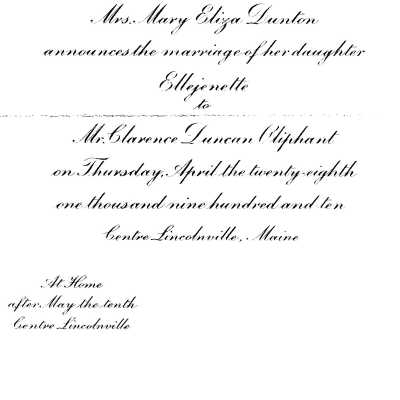 Mrs. Mary Eliza Dunton
announces the marriage of her daughter
Ellejenette
to
Mr. Clarence Duncan Oliphant
on Thursday, April the twenty-eighth
one thousand nine hundred and ten
Centre Lincolnville, Maine
At Home
after May the tenth
Centre Lincolnville